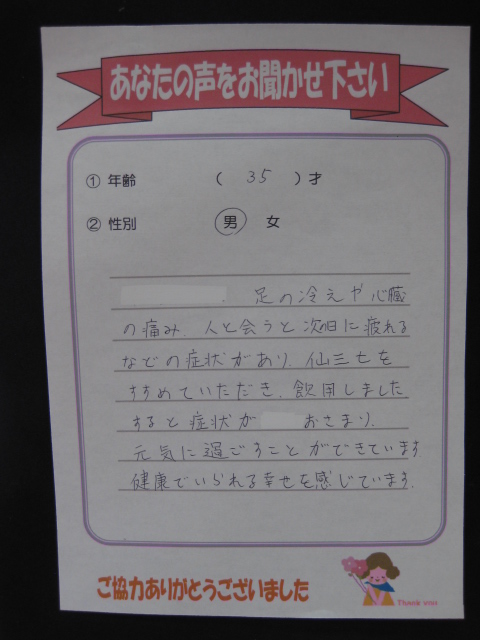 あなたの声をお聞かせ下さい
① 年齢 ( 35 ) 才
② 性別 男 女
足の冷えや心臓
の痛み. 人と会うと次の日に疲れる
などの症状があり. 仙三七を
すすめていただき. 飲用しました
すると症状が おさまり.
元気に過ごすことができています
健康でいられる幸せを感じています.
ご協力ありがとうございました
Thank you